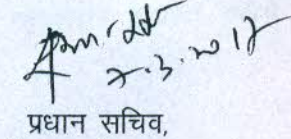 7.3.2017
प्रधान सचिव,